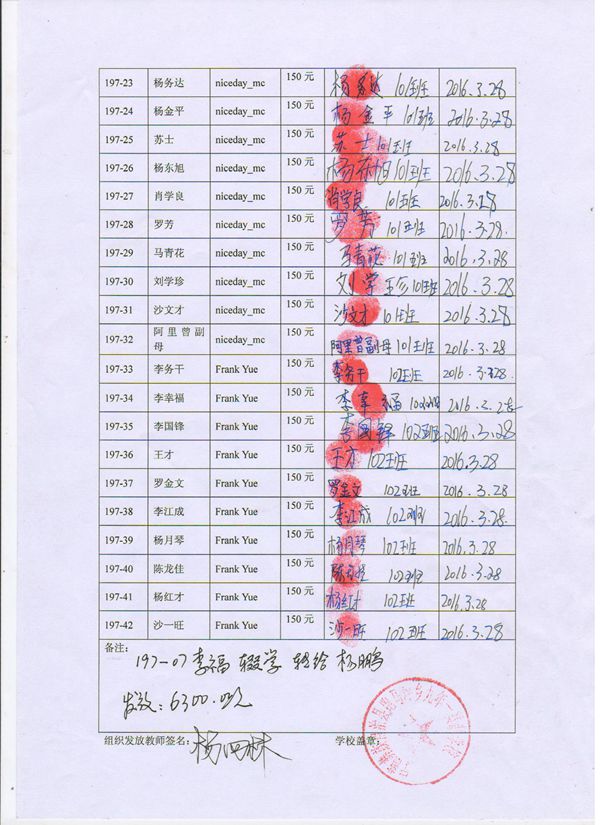 197-23 杨务达 niceday_mc 150 元 杨务达 101班 2016.3.28
197-24 杨金平 niceday_mc 150 元 杨金平 101班 2016.3.28
197-25 苏士 niceday_mc 150 元 苏士 101班 2016.3.28
197-26 杨东旭 niceday_mc 150 元 杨东旭 101班 2016.3.28
197-27 肖学良 niceday_mc 150 元 肖学良 101班 2016.3.28
197-28 罗芳 niceday_mc 150 元 罗芳 101班 2016.3.28.
197-29 马青花 niceday_mc 150 元 马青花 101班 2016.3.28
197-30 刘学珍 niceday_mc 150 元 刘学珍 101班 2016.3.28
197-31 沙文才 niceday_mc 150 元 沙文才 101班 2016.3.28
197-32 阿里曾副母 niceday_mc 150 元 阿里曾副母 101班 2016.3.28
197-33 李务干 Frank Yue 150 元 李务干 102班 2016.3.28
197-34 李幸福 Frank Yue 150 元 李幸福 102班 2016.3.28
197-35 李国锋 Frank Yue 150 元 李国锋 102班 2016.3.28
197-36 王才 Frank Yue 150 元 王才 102班 2016.3.28
197-37 罗金文 Frank Yue 150 元 罗金文 102班 2016.3.28
197-38 李江成 Frank Yue 150 元 李江成 102班 2016.3.28.
197-39 杨月琴 Frank Yue 150 元 杨月琴 102班 2016.3.28
197-40 陈龙佳 Frank Yue 150 元 102班 2016.3.28
197-41 杨红才 Frank Yue 150 元 杨红才 102班 2016.3.28
197-42 沙一旺 Frank Yue 150 元 沙一旺 102班 2016.3.28
备注：
197-07李福 辍学 转给 杨鹏
发放：6300.
组织发放教师签名： 杨四林 学校盖章：